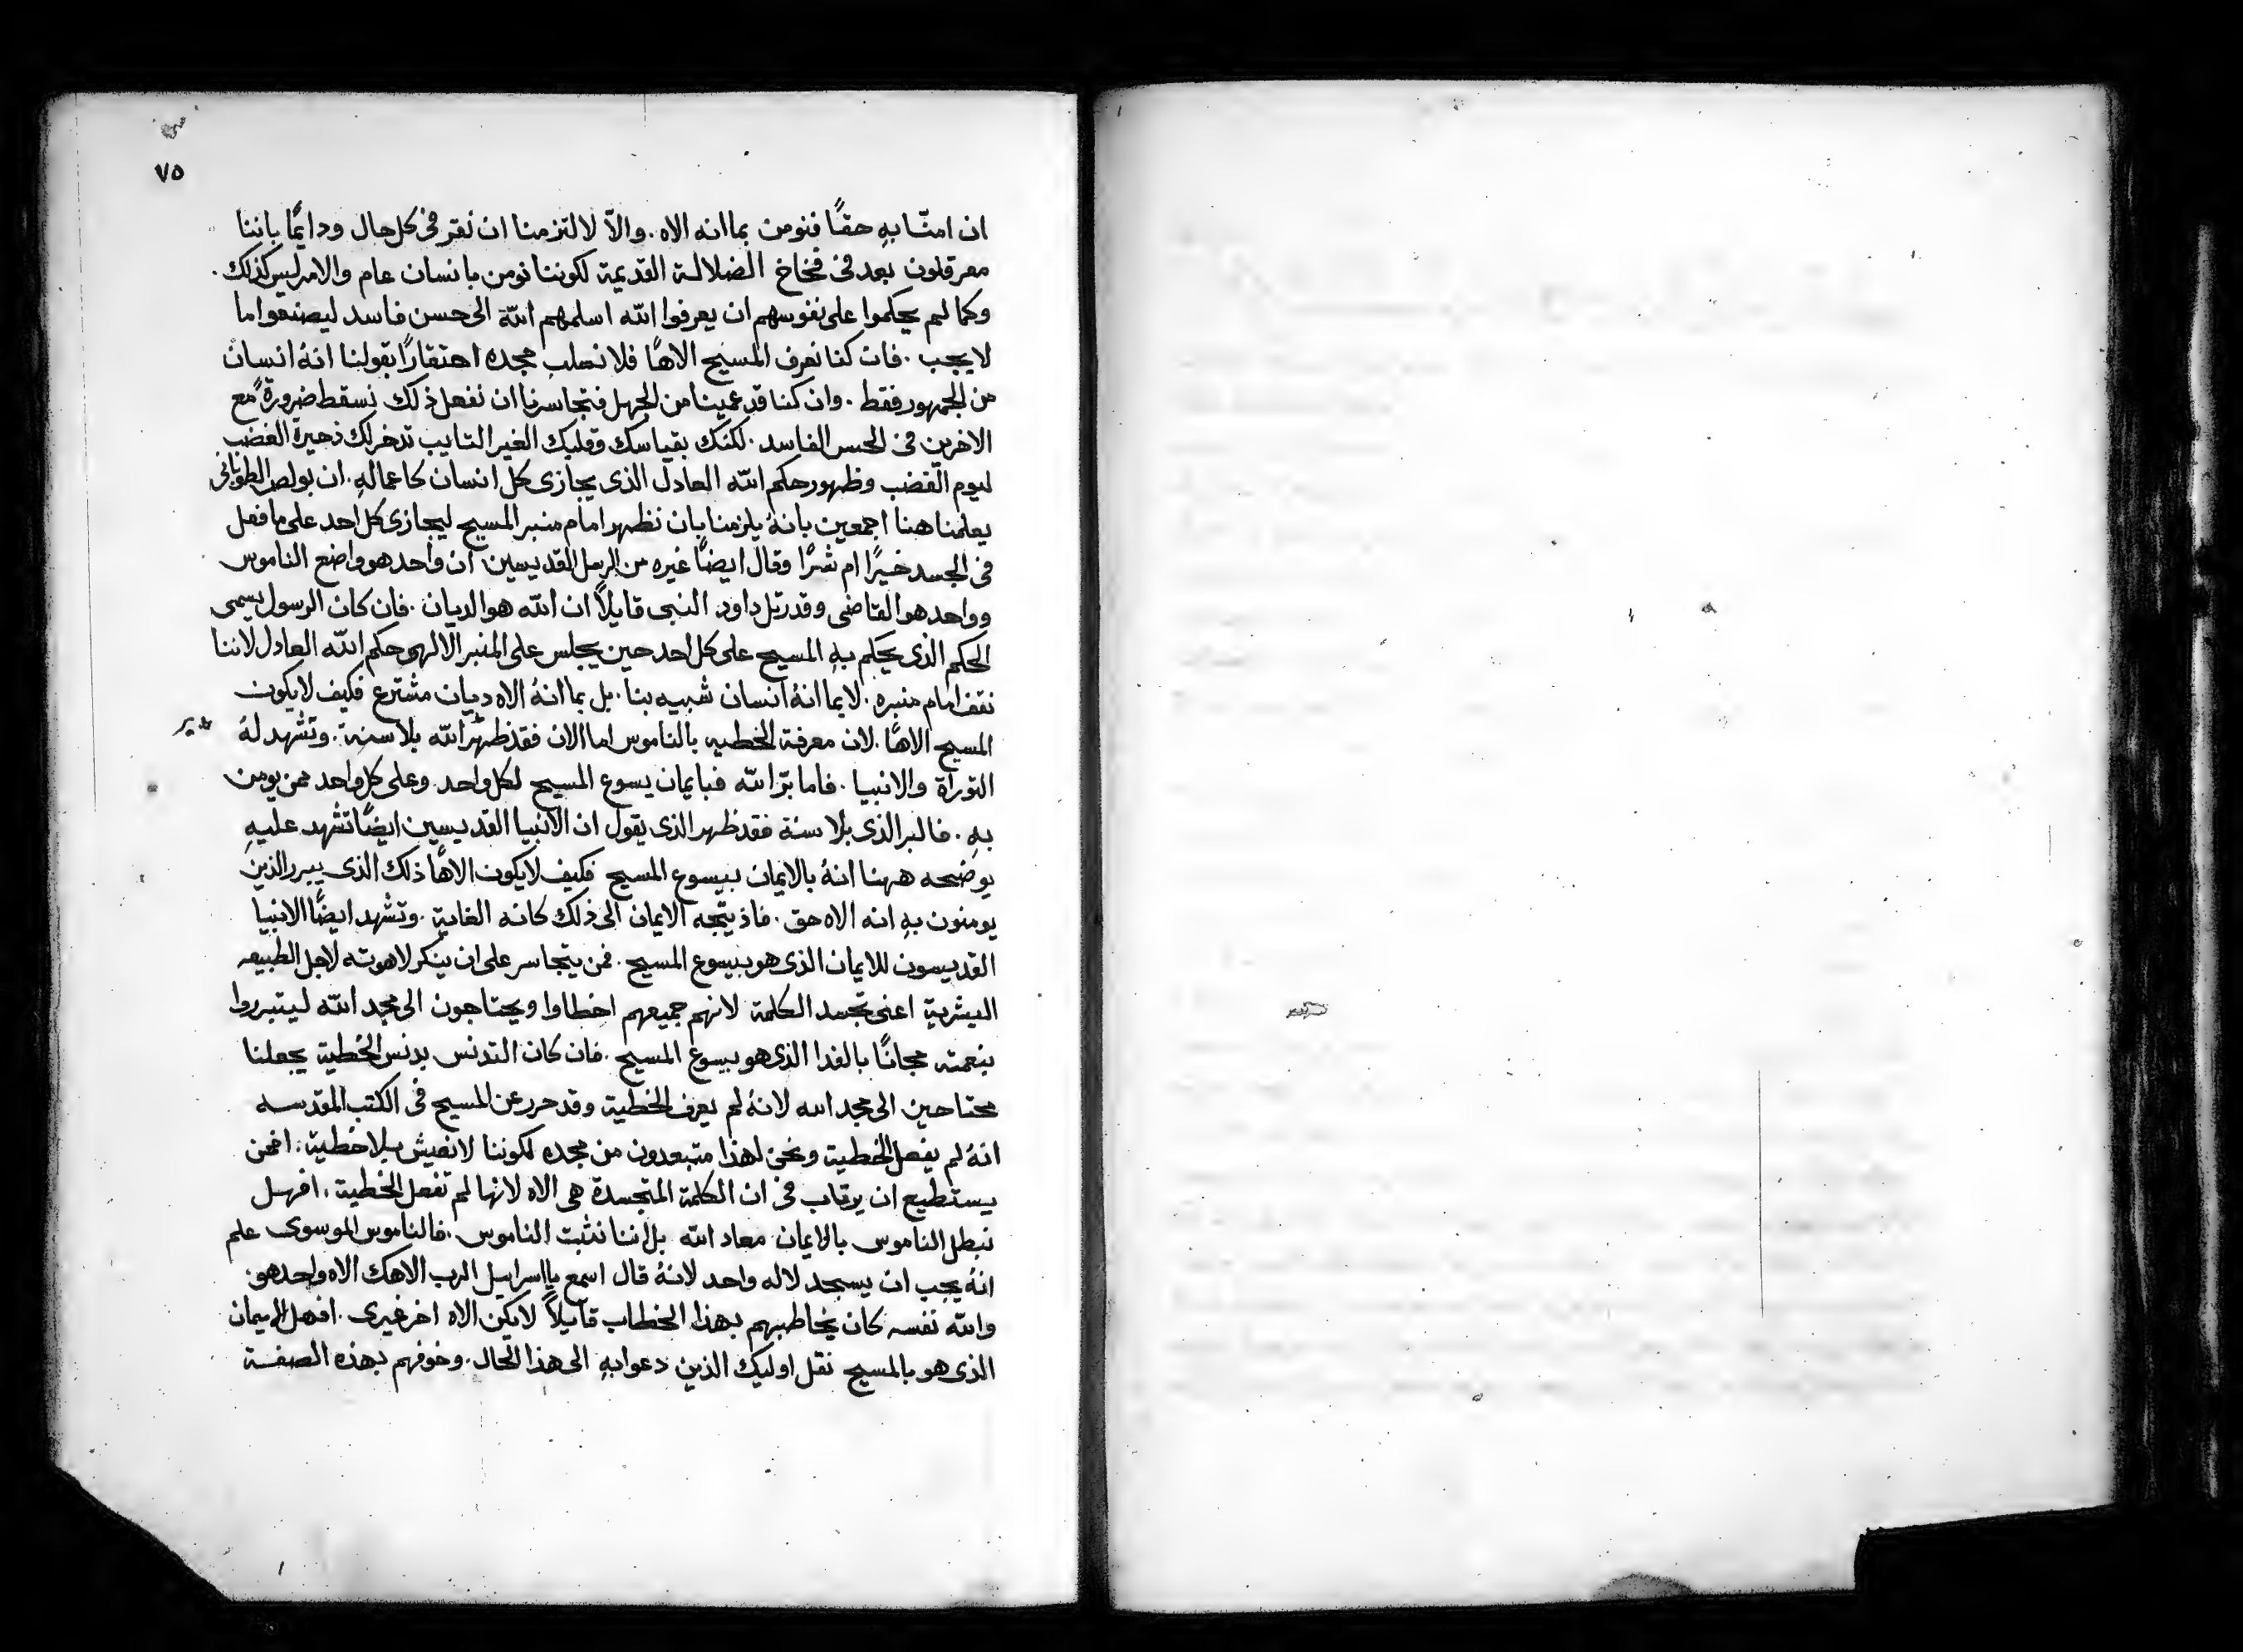 ٧٥
ان امنّا بهِ حقًا فنومن بما انه الاه. والاّ لالتزمنا ان نُقر فى كل حال ودايمًا باننا
معرقلون بعد فى فخاخ الضلالة القديمة لكوننا نومن بانسان عام والامر ليس كذلك.
وكما لم يحكموا على نفوسهم ان يعرفوا الله اسلمهم الله الى حسن فاسد ليصنعوا ما
لا يجب. فان كنا نعرف المسيح الاهًا فلا نسلب مجده احتقارًا بقولنا انهُ انسان
من الجمهور فقط. وان كنا قد عمينا من الجهل فتجاسرنا ان نفعل ذلك نسقط ضرورةً مع
الاخرين فى الحس الفاسد. لكنك بقياسك وقلبك الغير التايب تدخر لك ذخيرة الغضب
ليوم الغضب وظهور حكم الله العادل الذى يجازى كل انسان كاعمالهِ. ان بولص الطوبانى
يعلمنا هنا اجمعين بانهُ يلزمنا بان نظهر امام منبر المسيح ليجازى كل احد على ما فعل
فى الجسد خيرًا ام شرًا وقال ايضًا غيره من الرسل القديسين ان واحد هو واضع الناموس
وواحد هو القاضى وقد رتل داود النبى قايلاً ان الله هو الديان. فان كان الرسول يسمى
الحكم الذى يحكم بهِ المسيح على كل احد حين يجلس على المنبر الالهى حكم الله العادل لاننا
نقف امام منبره. لا بما انهُ انسان شبيه بنا. بل بما انهُ الاه ديان مشترع فكيف لا يكون
المسيح الاهًا. لان معرفة الخطيه بالناموس اما الان فقد ظهر الله بلا سنة. وتشهد لهُ
بر
التوراة والانبيا. فاما برّ الله فبايمان يسوع المسيح لكل واحد وعلى كل واحد ممن يومن
بهِ. فالبر الذى بلا سنة فقد ظهر الذى يقول ان الانبيا القديسين ايضًا تشهد عليهِ
يوضحه ههنا انهُ بالايمان بيسوع المسيح فكيف لا يكون الاهًا ذلك الذى يبرر الذين
يومنون بهِ انه الاه حق. فاذ يتجه الايمان الى ذلك كانه الغاية. وتشهد ايضًا الانبيا
القديسون للايمان الذى هو بيسوع المسيح. فمن يتجاسر على ان ينكر لاهوته لاجل الطبيعه
البشرية اعنى تجسد الكلمة لانهم جميعهم اخطاوا ويحتاجون الى مجد الله ليتبرروا
بنعمته مجانًا بالفدا الذى هو بيسوع المسيح. فان كان التدنس بدنس الخطية يجعلنا
محتاجين الى مجد الله لانهُ لم يعرف الخطية وقد حرر عن المسيح فى الكتب المقدسه
انهُ لم يفعل الخطية ونحن لهذا متبعدون من مجده لكوننا لا نعيش بلا خطية. افمن
يستطيع ان يرتاب فى ان الكلمة المتجسدة هى الاه لانها لم تفعل الخطية. افهل
نبطل الناموس بالايمان معاد الله بل اننا نثبت الناموس. فالناموس الموسوى علم
انهُ يجب ان يسجد لاله واحد لانهُ قال اسمع يا اسراييل الرب الاهك الاه واحد هو.
والله نفسه كان يخاطبهم بهذا الخطاب قايلاً لا يكن الاه اخر غيرى. افهل الايمان
الذى هو بالمسيح نقل اوليك الذين دعوا بهِ الى هذا الحال. وخوفهم بهذه الصفة